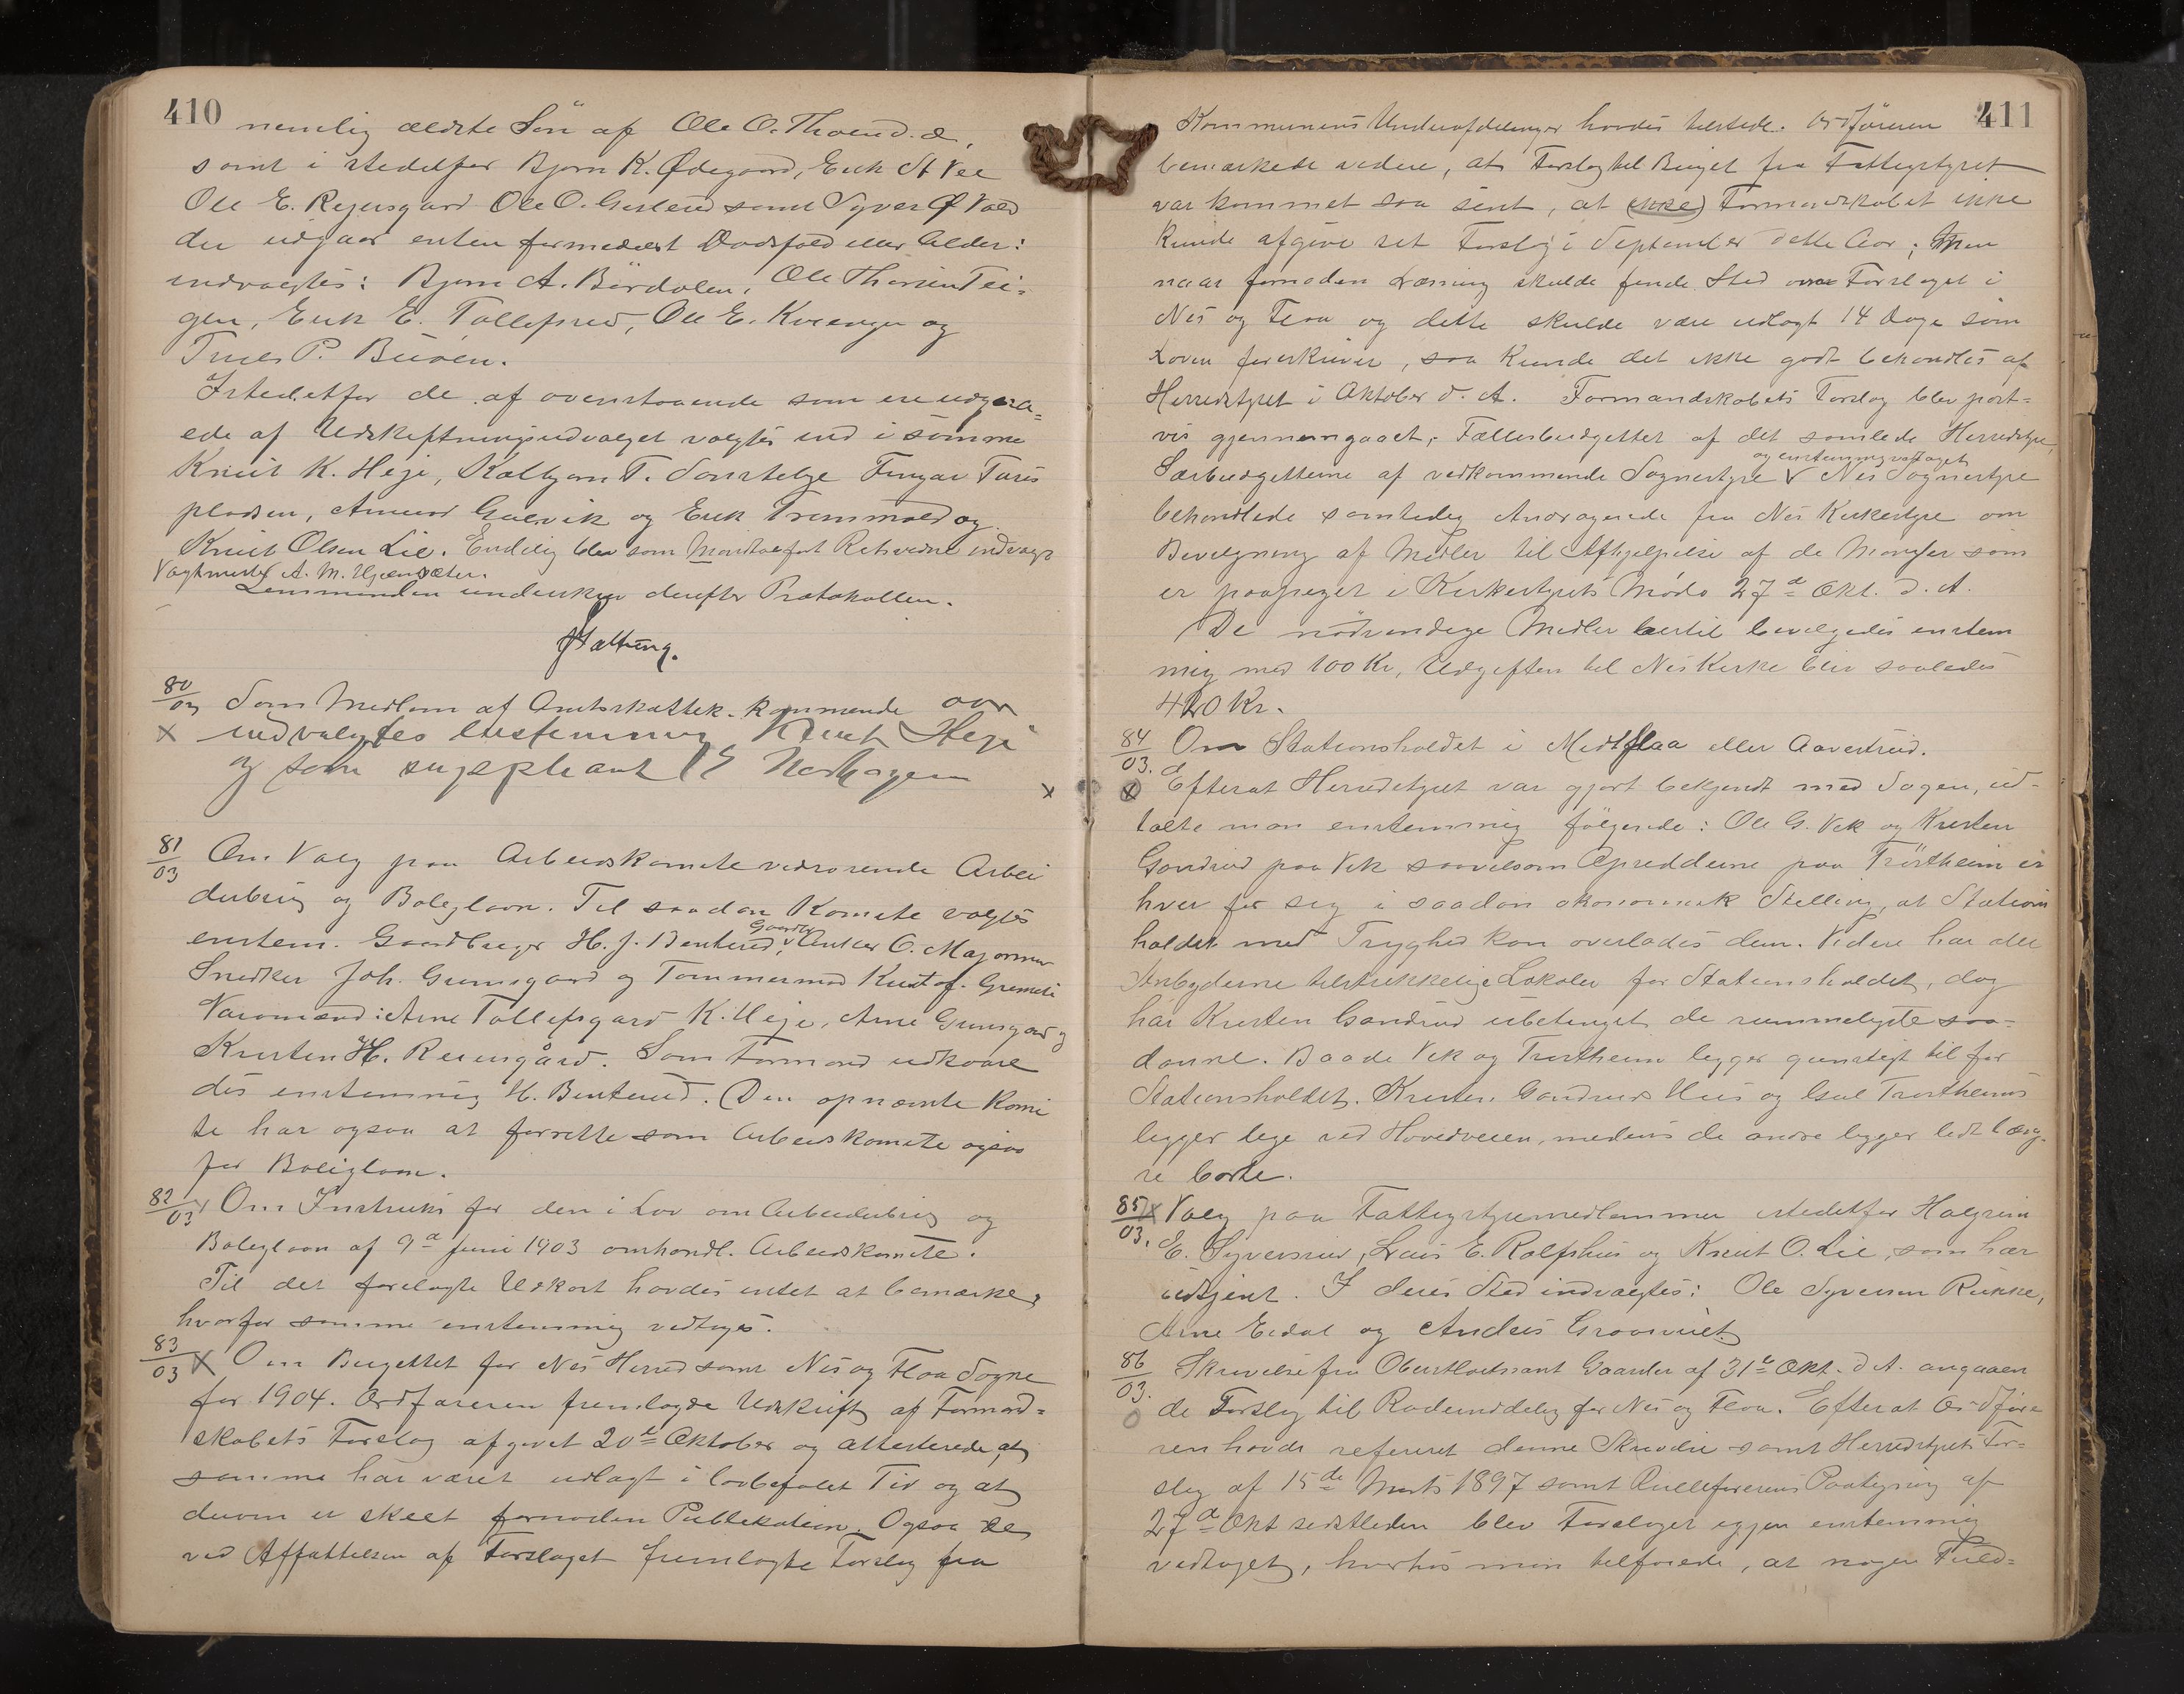 410
nemlig ældste Søn af Ole O. Thoend. æ,
samt i stedetfor Bjørn K. Ødegaard, Erik St Vee
Ole E. Rejersgaard Ole O. Gisleud samt Syver Ø Vold
der udgaar enten formedelst Dødsfald eller Alder:
indvalgtes: Bjørn A. Børdalen, Ole Thorsen Tei-
gen, Erik E. Tollefsrud, Ole E. Kvænger og
Truls P. Buøen.
Istedetfor de af ovenstaaende som ere udgaa-
ede af Udskiftningsudvalget valgtes ind i samme
Knut K. Heje, Kolbjørn T. Sønsteby Fingar Turis
pladsen, Amund Gulsvik og Erik Trommald og
Knut Olsen Lie. Endelig blev som indvalgt
Vagtmester A. M. Hjensæter.
Lensmanden underskrev derefter Protokollen.
80/03 Som Medlem af Amtsskattek. kommende aar
x indvalgtes enstemmig Knut Heje
og som suppleant E Nerhagen
x
81/03 Om Valg paa Arbeidskomite vedrørende Arbei
derbrug og Boliglaan. Til saadan Komite valgtes
enstem. Gaardbruger H. J. Benterud, Gaardbr Anders O. Majormoen
Snedker Joh. Grimsgaard og Tømmermand Knut of. Grimeli
Varamænd: Arne Tollefsgard K. Heje, Arne Grimsgard og
Kristen H. Reiersgård. Som Formand udkaare
des enstemmig H. Benterud. Den opnævnte Komi
te har ogsaa at forrette som Arbeidskomite ogsaa
for Boliglaan.
82/03 x Om Instruks for den i Lov om Arbeiderbrug og
Boliglaan af 9de Juni 1903 omhandl. Arbeidskomite.
Til det forelagte Udkast havdes intet at bemærke,
hvorfor samme enstemmig vedtoges.
83/03 x Om Bugettet for Nes Herred samt Nes og Flaa Sogne
for 1904. Ordføreren fremlagde Udskrift af Formand-
skabets Forslag afgivet 20de Oktober og attesterede, at
samme har været udlagt i lovbefalet Tid og at
derom er skeet fornøden Publikation. Ogsaa de
ved Affattelsen af Forslaget fremlagte Forslag fra
411
Kommunens Underafdelinger havdes tilstede. Ordføreren
bemærkede videre, at Forslag til Buget fra Fattigstyret
var kommet saa sent, at (ikke) Formandskabet ikke
kunde afgive set Forslag i September dette Aar; Men
naar fornøden Læsning skulde finde Sted over Forslaget i
Nes og Flaa og dette skulde være udlagt 14 Dage som
Loven foreskriver, saa kunde det ikke godt behandles af
Herredstyret i Oktober d. A. Formandskabets Forslag blev post-
vis gjennemgaaet, Fællesbudgettet af det samlede Herredstyre,
og enstemmig vedtaget
Særbudgetterne af vedkommende Sognestyre V Nes Sognestyre
behandlede samtidig Andragende fra Nes Kirkestyre om
Bevilgning af Midler til Afhjelpelse af de Mangler som
er paapeget i Kirkestyrets Møde 27de Okt. d. A.
De nødvendige Midler hertil bevilgedes enstem
mig med 100 Kr, Udgiften til Nes Kirke blir saaledes
420 Kr.
84/03. Om Stationsholdet i Midtflaa eller Aavestrud.
x Efterat Herredstyret var gjort bekjendt med Sagen, ud-
talte man enstemmig følgende: Ole G. Vik og Kristen
Gandrud paa Vik saavelsom Opsidderne paa Trøstheim er
hver for sig i saadan økonomisk Stilling, at Stations
holdet med Tryghed kan overlades dem. Videre har alle
Anbyderne tilstrækkelige Lokaler for Stationsholdet, dog
har Kristen Gandrud ubetinget de rummeligste saa-
danne. Baade Vik og Trøstheim ligger gunstigt til for
Stationsholdet. Kristen Gandruds Hus og Gul Trøstheims
ligger lige ved Hovedveien, medens de andre ligger lidt læng-
re borte.
85/03. x Valg paa Fattigstyremedlemmer istedetfor Halgrim
E. Syversrud, Lars E. Rolfshus og Knut O. Lie, som har
udtjent. I deres Sted indvalgtes: Ole Syversen Rukke,
Arne Eidal og Anders Graaruet
86/03. Skrivelse fra Oberstløitnant Gaarder af 31te Okt. d A. angaaen
de Forslag til Rodeinddeling for Nes og Flaa. Efterat Ordføre
ren havde refereret denne Skrivelse samt Herredstyrets For-
slag af 15de Marts 1897 samt Rulleførerens Paategning af
27de Okt sidstleden blev Forslaget igjen enstemmig
vedtaget, hvorhos man tilføiede, at nogen Fuld-